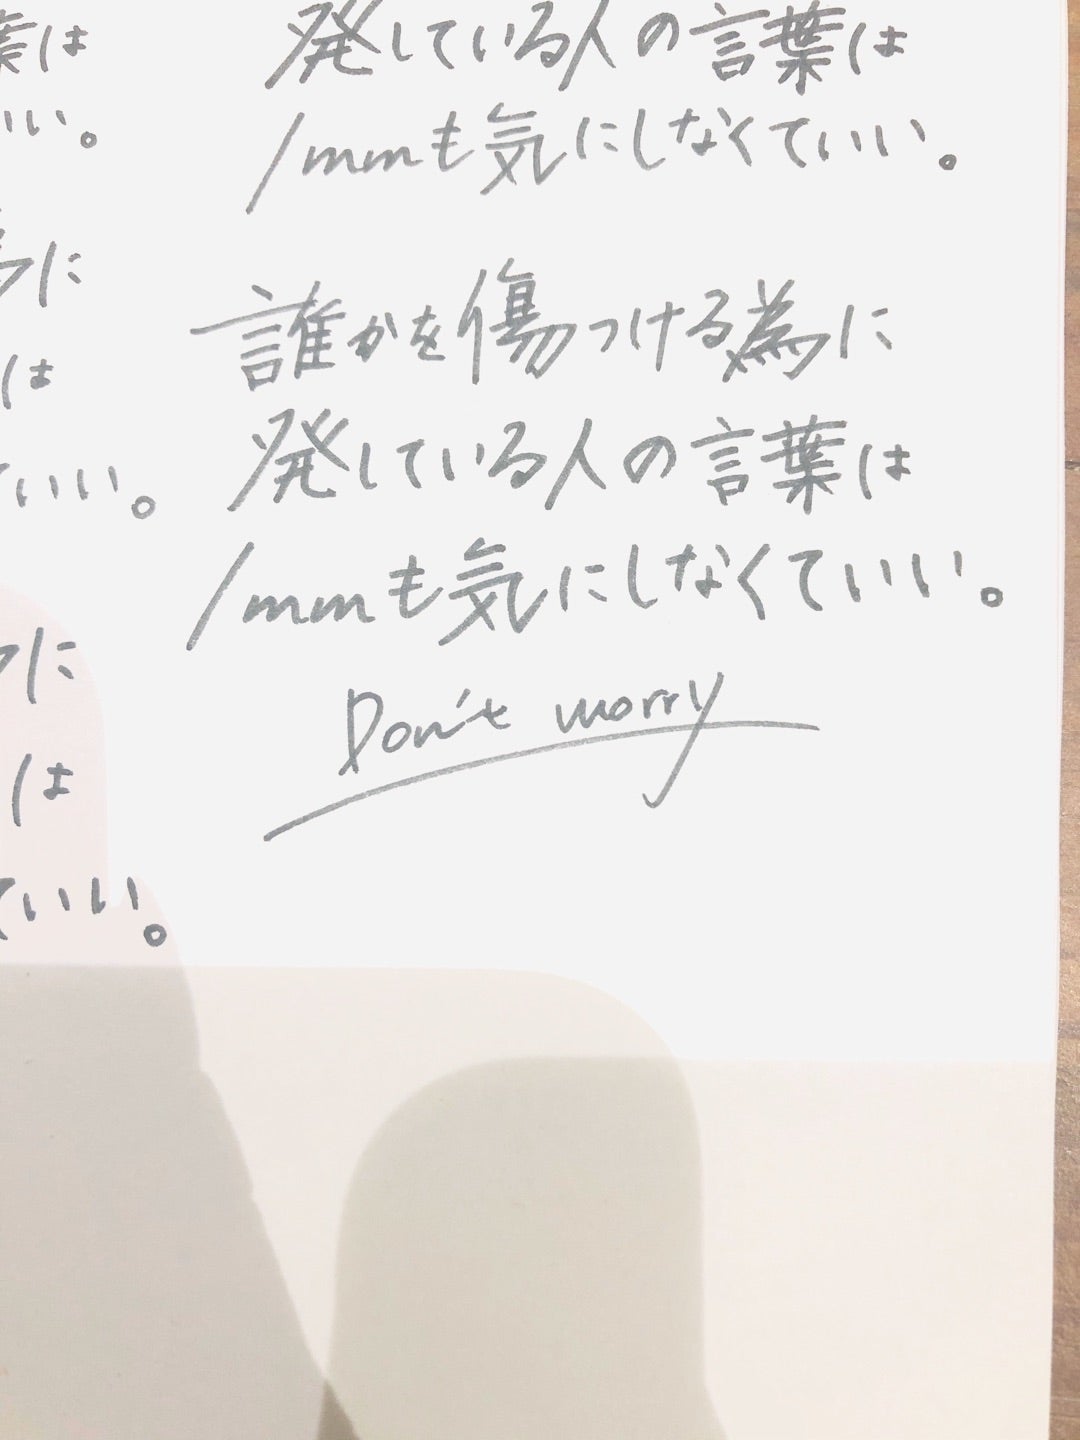 葉は
いい。
為に
は
ていい。
に
は
ていい。
発している人の言葉は
1mmも気にしなくていい。
誰かを傷つける為に
発している人の言葉は
1mmも気にしなくていい。
Don't worry